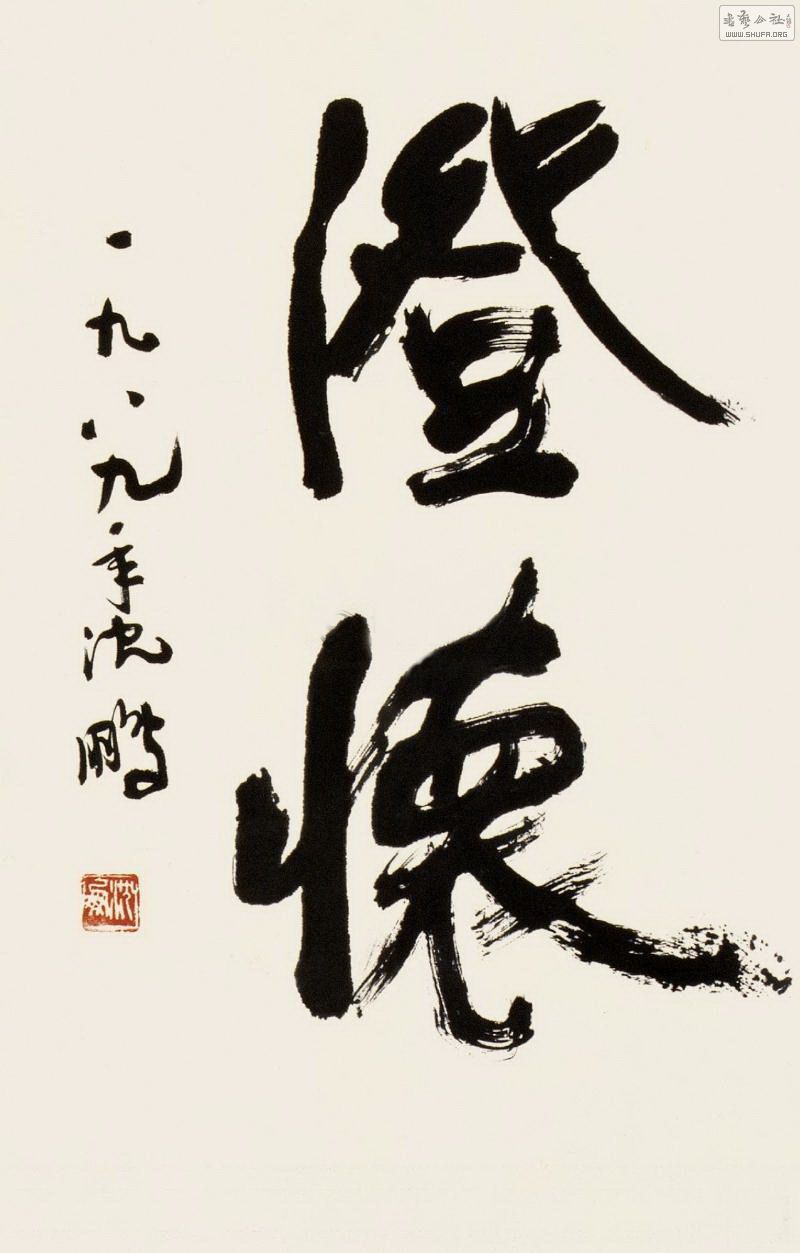 澄懷
一九八九年沈鹏
书艺公社
WWW.SHUFA.ORG